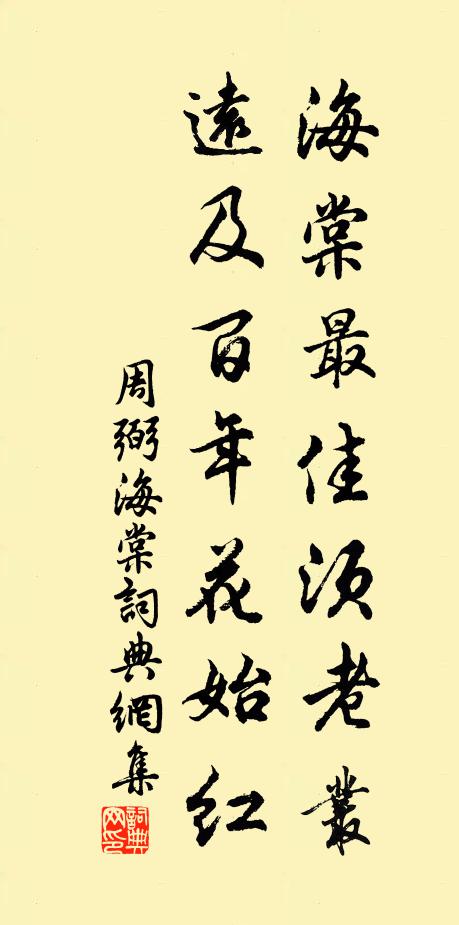 海棠最佳須老叢
遠及百年花始紅
周弼海棠詞典網集
詞典网印